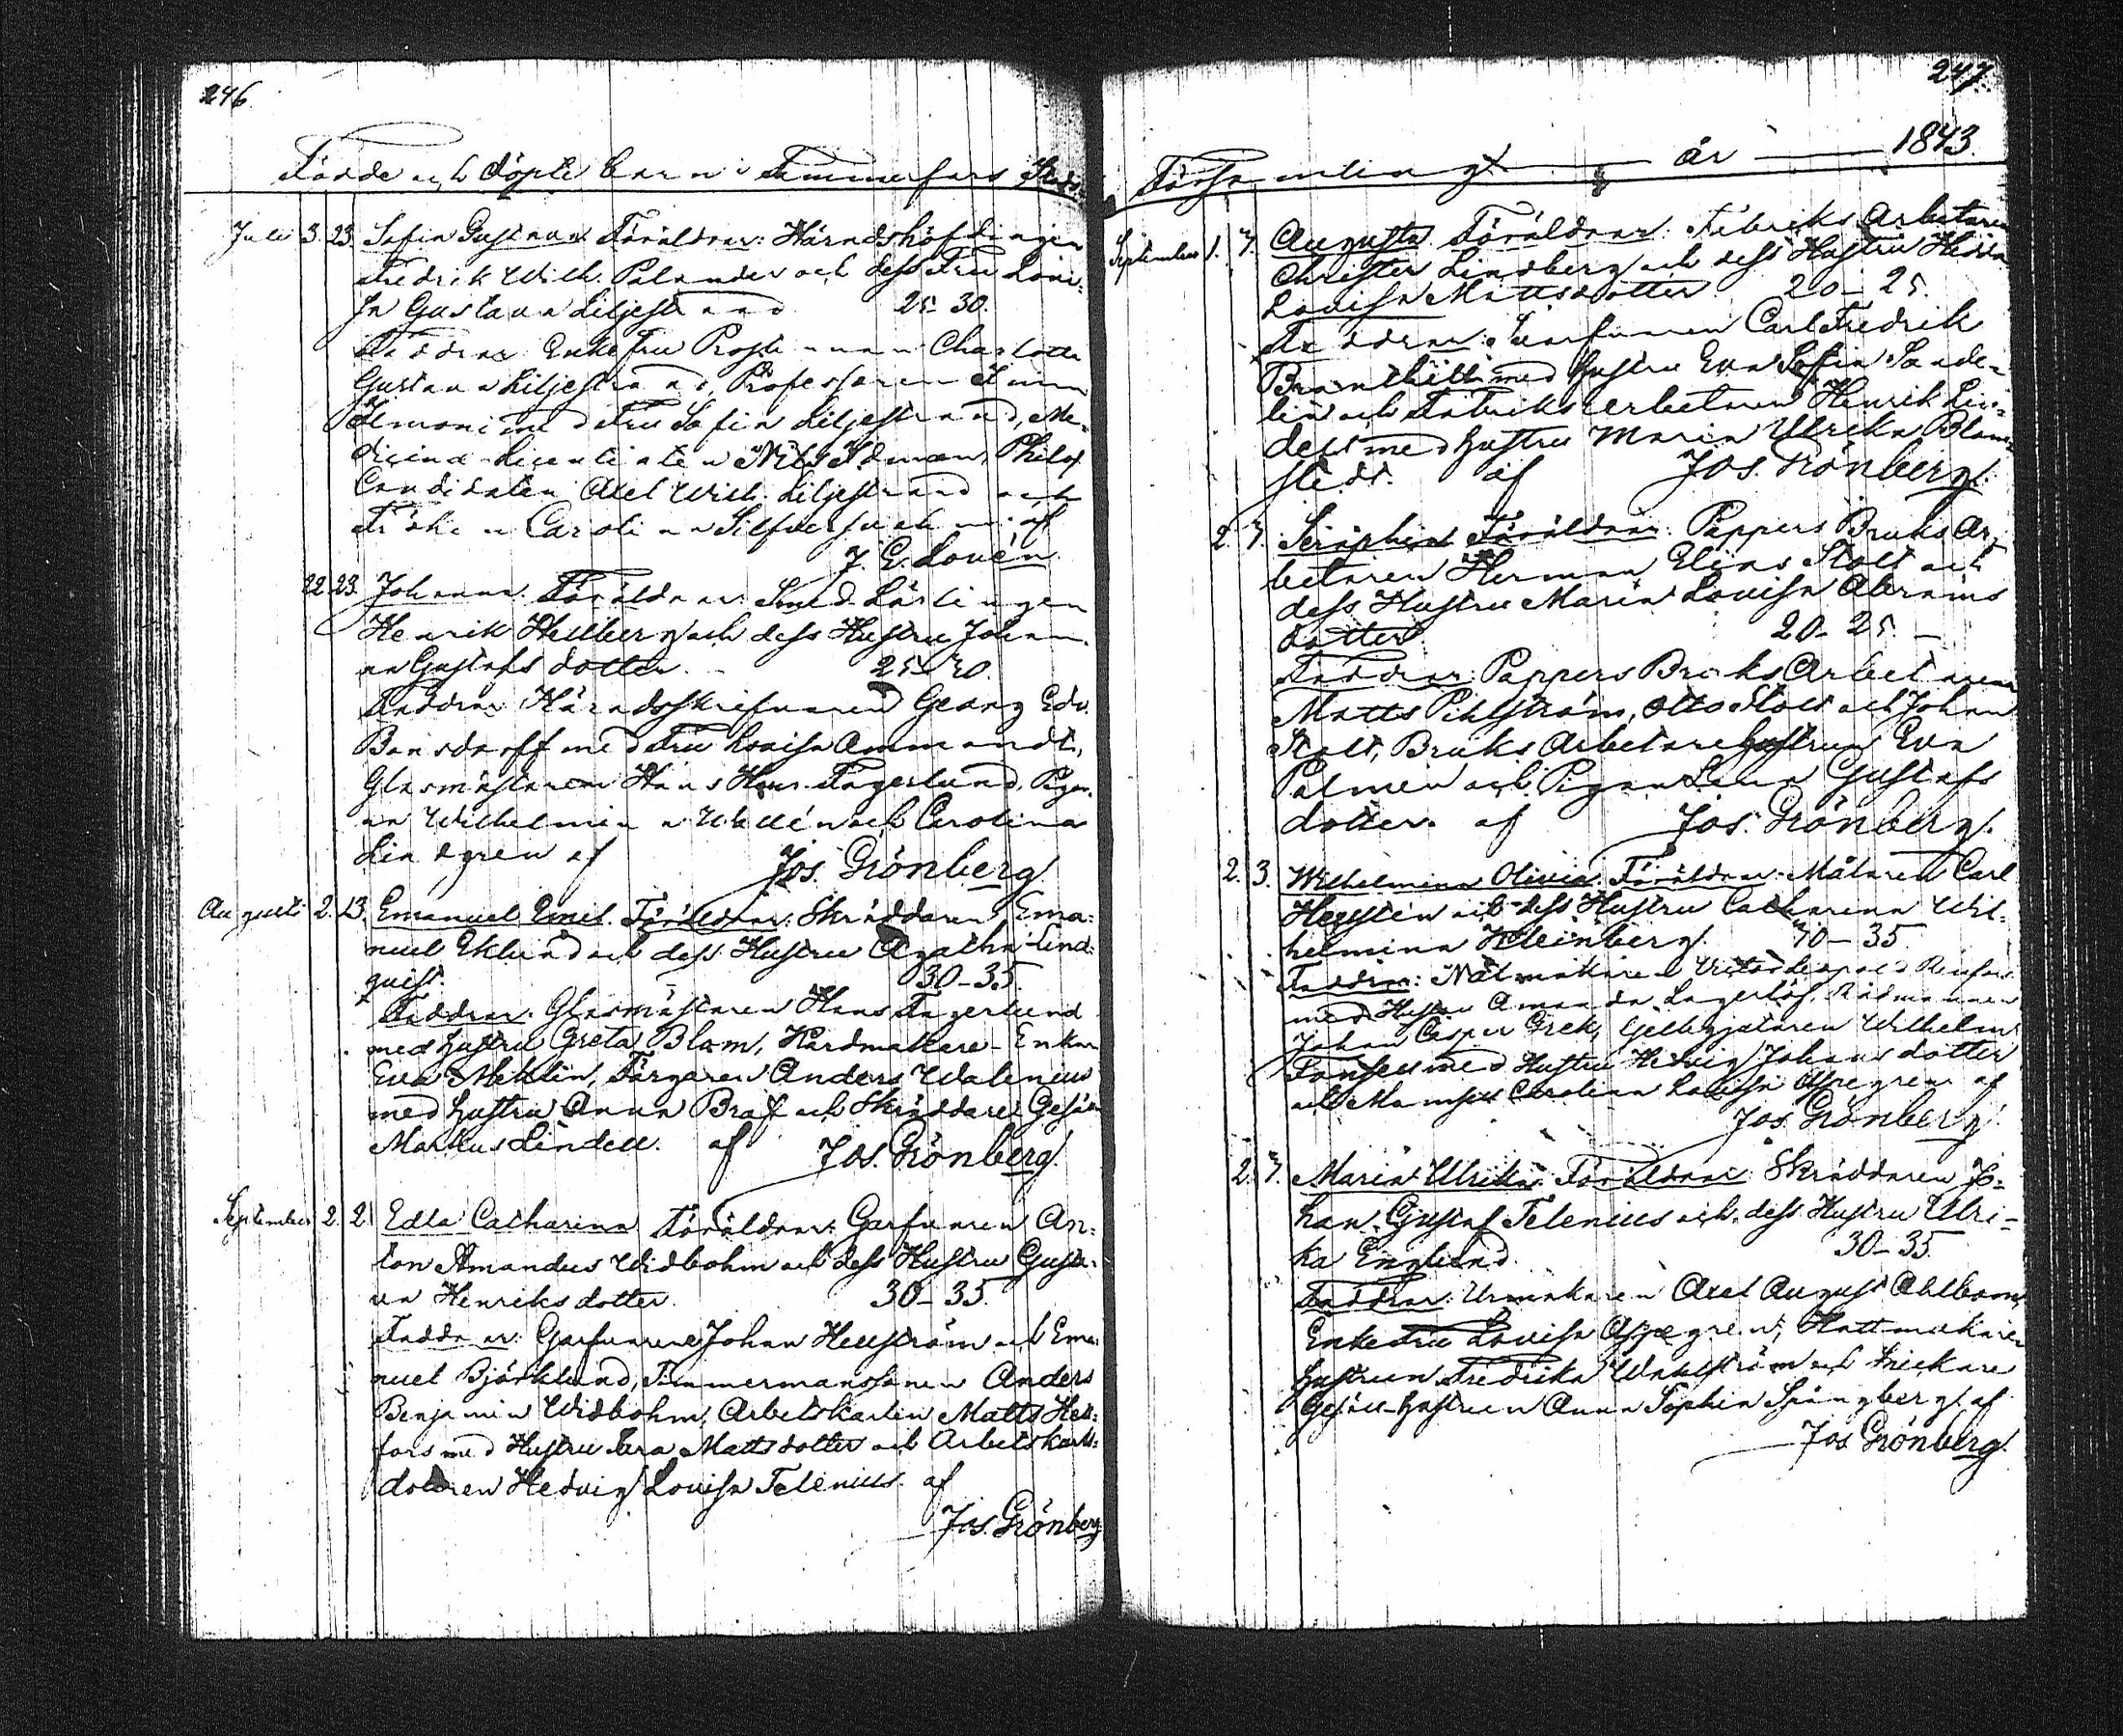 246
Födde och döpte barn i Tammerfors Stads
Juli 3. 23. Sofia Gustava. Föräldrar: Häradshöfdingen
Fredrik Wilh. Palander och dess Fru Loui-
sa Gustava Liljestrand 25-30.
Faddrar: Enke Fru Prostinnan Charlotta
Gustava Liljestrand, Professoren
Ilmoni med Fru Sofia Liljestrand, Me-
dicine Licentiaten Nils Idman, Philos.
Candidaten Axel Wilh. Liljestrand och
Fröken Carolina af
J. E. Lovén
22. 23. Johanna. Föräldrar: Smeds Lärlingen
Henrik Hellberg och dess Hustru Johan-
na Gustafs dotter. 25-30.
Faddrar: Häradsskrifvaren Georg Edv.
Bonsdorff med Fru Lovisa Ammondt,
Glasmästaren Hans Henr. Fagerlund, Pigor-
na Wilhelmina och Carolina
Lindgren af Jos. Grönberg.
Augusti 2. 13. Emanuel Emil. Föräldrar: Skräddaren Ema-
nuel Eklund och dess Hustru Agatha Lind-
quist. 30-35.
Faddrar: Glasmästaren Hans Fagerlund
med hustru Greta Blom, Kardmakare-Enkan
Eva Meklin, Färgaren Anders Walenius
med hustru Anna Brax och Skräddare Gesällen
Markus Lindell. af Jos. Grönberg.
September 2. 2. Edla Catharina Föräldrar: Garfvaren An-
ton Amandus Widbohm och dess Hustru Gusta-
va Henriks dotter. 30-35.
Faddrar: Garfvarene Johan Hellström och Ema-
nuel Björklund, Timmermanssonen Anders
Benjamin Widbohm, Arbetskarlen Matts Hell-
fors med Hustru Matts dotter och Arbetskarls-
dottren Hedvig Lovisa Telenius. af
Jos. Grönberg
247.
Församling år 1843.
September 1. 3. Augusta. Föräldrar: Fabriks Arbetaren
Christer Lindberg och dess Hustru Hedda
Lovisa Mattsdotter. 20-25.
Faddrar: Garfvaren Carl Fredrik
med Hustru Eva Sofia Sande-
lin och Fabriks arbetaren Henrik Lin-
dell med hustru Maria Ulrika Blom-
stedt. af Jos. Grönberg.
2. 3. Seraphia. Föräldrar: Pappers Bruks Ar-
betaren Herman Elias Stolt och
dess Hustru Maria Lovisa Abrams
dotter. 20-25.
Faddrar: Pappers Bruks Arbetarena
Matts Pihlström, Otto Stolt och Johan
Stolt, Bruks Arbetare hustrun Eva
Palmen och Pigan Lena Gustafs
dotter. af Jos. Grönberg.
2. 3. Wilhelmina Olivia. Föräldrar: Målaren Carl
och dess Hustru Catharina Wil-
helmina Kleinberg. 30-35.
Faddrar: Nålmakaren Victor Leopold
med Hustru Amanda Lagerlöf, Rådmannen
Johan Casper Grek, Gelbgjutaren Wilhelm
med Hustru Hedvig Johans dotter
och Mamsell Carolina Lovisa Aspegren af
Jos. Grönberg.
2. 3. Maria Ulrika. Föräldrar: Skräddaren Jo-
han Gustaf Telenius och dess Hustru Ulri-
ka Englund. 30-35.
Faddrar: Urmakaren Axel August Ahlbom,
Enkefru Lovisa Aspegren, Hattmakare
hustrun Fredrika Wahlström och Snickare
Gesäll-hustrun Anna Sophia Spångberg. af
Jos. Grönberg.